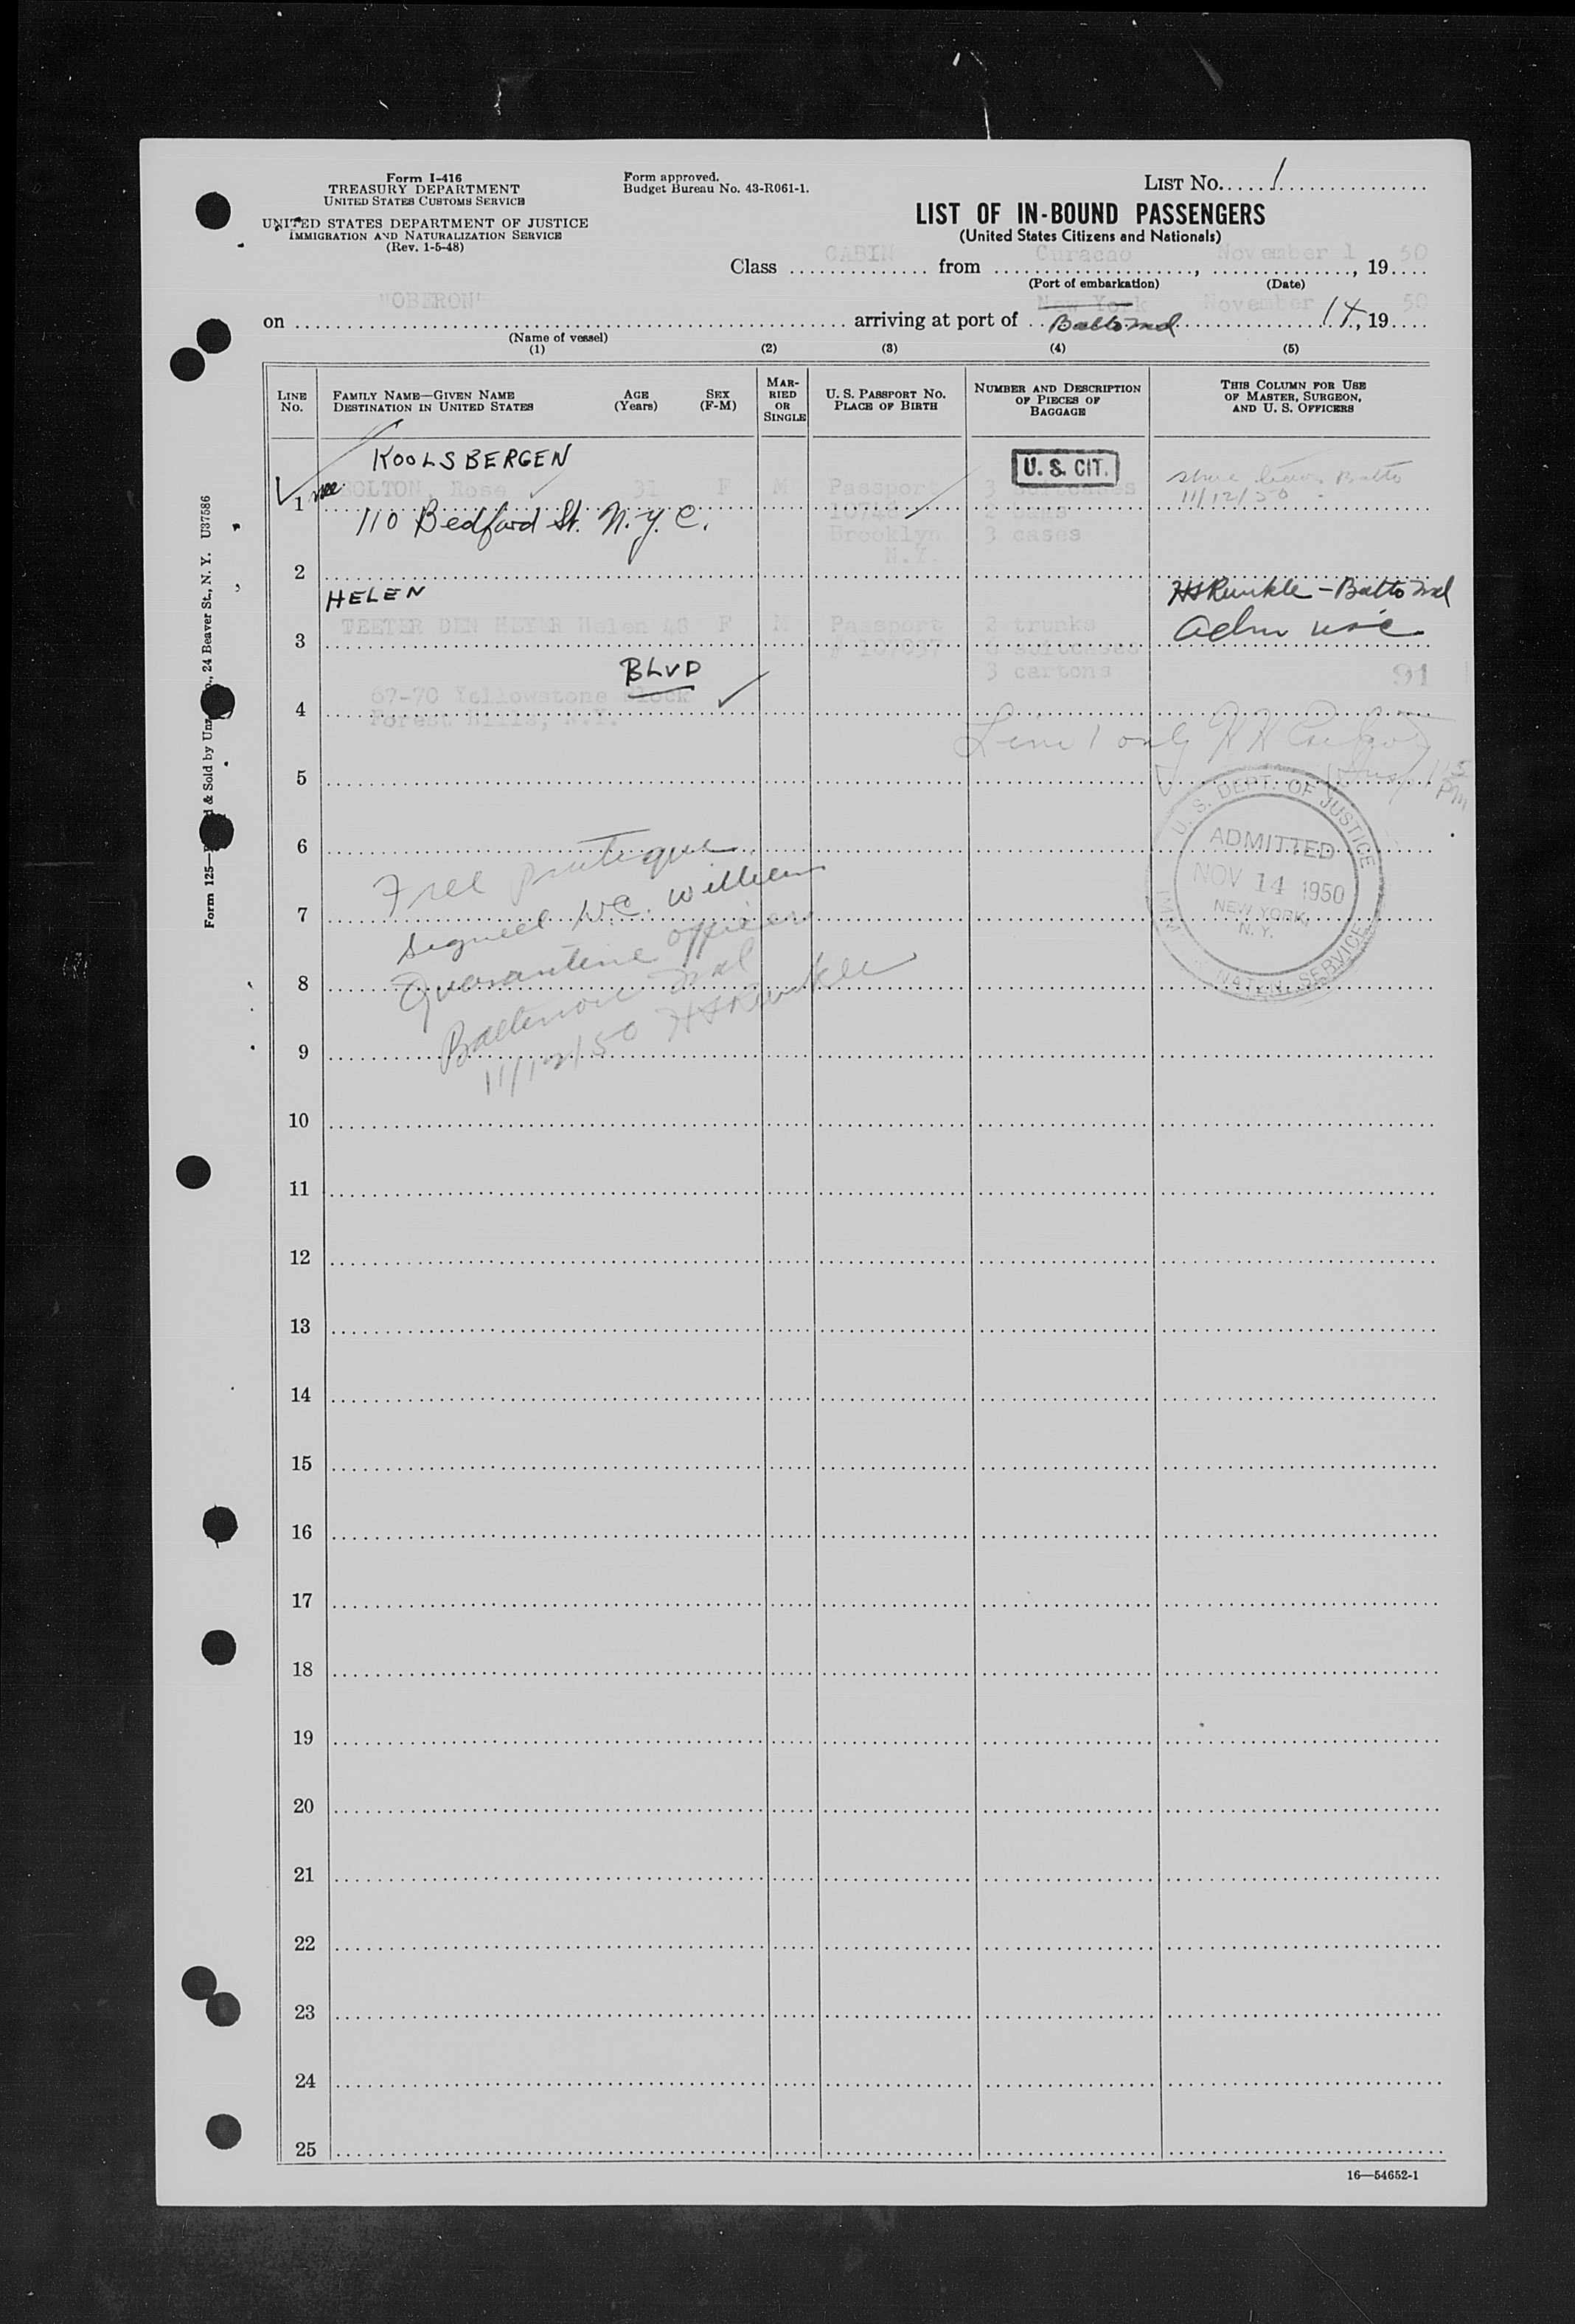 Form I-416
TREASURY DEPARTMENT
UNITED STATES CUSTOMS SERVICE
UNITED STATES DEPARTMENT OF JUSTICE
IMMIGRATION AND NATURALIZATION SERVICE
(Rev. 1-5-48)
Form approved.
Budget Bureau No. 43-R061-1.
LIST No. 1
LIST OF IN-BOUND PASSENGERS
(United States Citizens and Nationals)
Class CABIN from Curacao, November 1, 1950
(Port of embarkation) (Date)
on "OBERON" arriving at port of New York Balto Md November 14, 1950
(Name of vessel)
(1) (2) (3) (4) (5)
LINE No.
FAMILY NAME—GIVEN NAME DESTINATION IN UNITED STATES
AGE (Years)
SEX (F-M)
MARRIED OR SINGLE
U. S. PASSPORT No. PLACE OF BIRTH
NUMBER AND DESCRIPTION OF PIECES OF BAGGAGE
THIS COLUMN FOR USE OF MASTER, SURGEON, AND U. S. OFFICERS
KOOLSBERGEN
U. S. CIT.
1 nee BOLTON, Rose 31 F M Passport 3 suitcases
11/12/50
110 Bedford St. N.Y.C.
Brooklyn N.Y. 3 cases
2
HELEN
HS Runkle - Balto Md
3 TEETER DEN HEYER Helen 48 F M Passport 2 trunks
# 107037 6 suitcases
Adm USC
BLVD
3 cartons
91
4 67-70 Yellowstone Block
Forest Hills, N.Y.
Line 1 only
5
U. S. DEPT. OF JUSTICE
ADMITTED
NOV 14 1950
NEW YORK, N. Y.
IMM. NATZN. SERVICE
6
Free pratique
7
signed W.C. Williams
Quarantine officer
8
Baltimore Md
9
11/12/50 HS Runkle
10
11
12
13
14
15
16
17
18
19
20
21
22
23
24
25
16—54652-1
24 Beaver St., N. Y. U37586
& Sold by
Form 125—